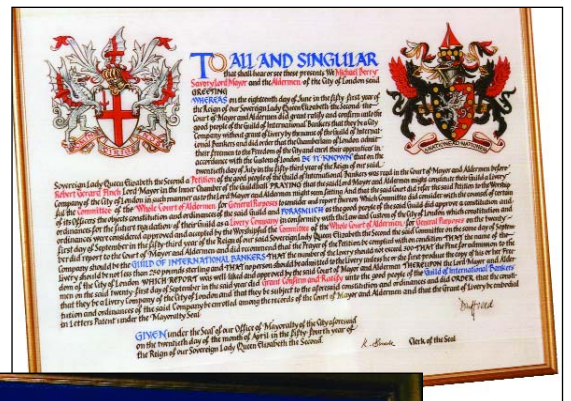 TO ALL AND SINGULAR
that shall hear or see these presents, We Michael Berry
Savory Lord Mayor and the Aldermen of the City of London send
GREETING
WHEREAS on the eighteenth day of June in the fifty first year of
the Reign of our Sovereign Lady Queen Elizabeth the Second the
Court of Mayor and Aldermen did grant ratify and confirm unto the
good people of the Guild of International Bankers that they be a City
Company without grant of Livery by the name of the Guild of Internat-
ional Bankers and did order that the Chamberlain of London admit
their freemen to the Freedom of the City and enrol their apprentices in
accordance with the Custom of London BE IT KNOWN that on the
twentieth day of July in the fifty third year of the Reign of our said
Sovereign Lady Queen Elizabeth the Second a Petition of the good people of the Guild of International Bankers was read in the Court of Mayor and Aldermen before
Robert Gerard Finch Lord Mayor in the Inner Chamber of the Guildhall PRAYING that the said Lord Mayor and Aldermen might constitute their Guild a Livery
Company of the City of London in such manner as to the Lord Mayor and Aldermen might seem fitting And that the said Court did refer the said Petition to the Worship
ful the Committee of the Whole Court of Aldermen for General Purposes to consider and report thereon Which Committee did consider with the consent of certain
of its Officers the objects constitution and ordinances of the said Guild and FORASMUCH as the good people of the said Guild did approve a constitution and
ordinances for the future regulation of their Guild as a Livery Company in conformity with the Law and Custom of the City of London which constitution and
ordinances were considered approved and accepted by the Worshipful the Committee of the Whole Court of Aldermen, for General Purposes on the twenty
first day of September in the fifty third year of the Reign of our said Sovereign Lady Queen Elizabeth the Second the said Committee on the same day of Septem
ber did report to the Court of Mayor and Aldermen and did recommend that the Prayer of the Petition be complied with on condition THAT the name of the
Company should be GUILD OF INTERNATIONAL BANKERS THAT the number of the Livery should not exceed 300 THAT the Fine for admission to the
Livery should be not less than 250 pounds sterling and THAT no person should be admitted to the Livery unless he or she first produce the copy of his or her Free-
dom of the City of London WHICH REPORT was well heard and approved by the said Court of Mayor and Aldermen WHEREUPON the Lord Mayor and Alder
men on the said twenty first day of September in the said year did Grant Confirm and Ratify unto the good people of the Guild of International Bankers
that they be a Livery Company of the City of London and that they be subject to the aforesaid constitution and ordinances and did ORDER that the consti-
tution and ordinances of the said Company be enrolled among the records of the Court of Mayor and Aldermen and that the Grant of Livery be embodied
in Letters Patent under the Mayoralty Seal
GIVEN under the Seal of our Office of Mayoralty of the City aforesaid
on the twentieth day of the month of April in the fifty fourth year of
the Reign of our Sovereign Lady Queen Elizabeth the Second.
Clerk of the Seal